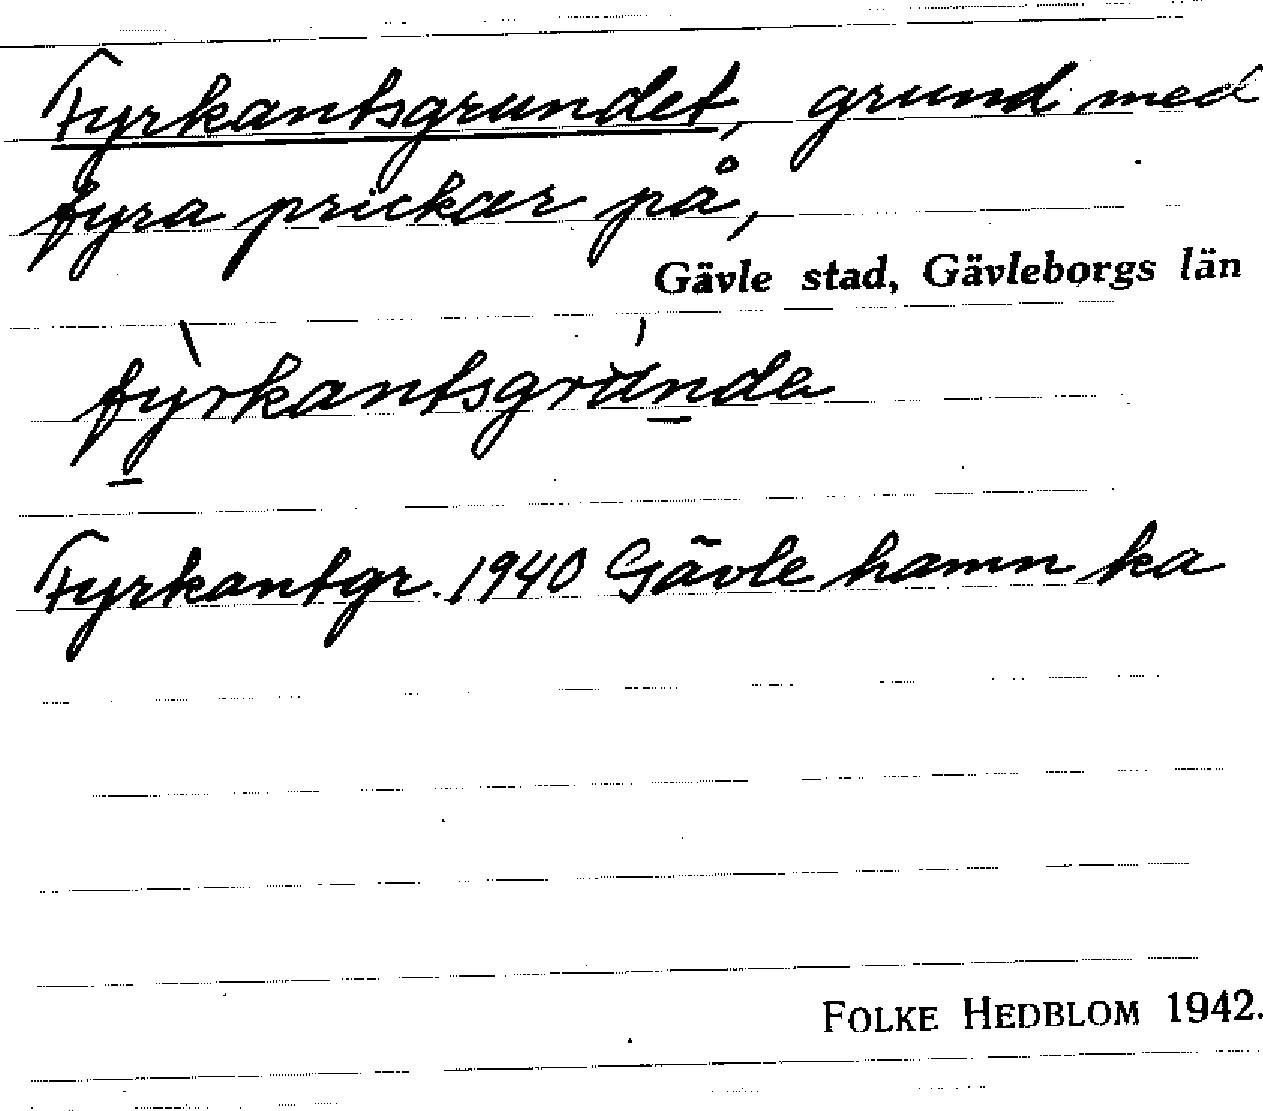 Fyrkantsgrundet, grund med
fyra prickar på,
Gävle stad, Gävleborgs län
fỳrkantsgrúnda
Fyrkantgr. 1940 Gävle hamn ka
FOLKE HEDBLOM 1942.